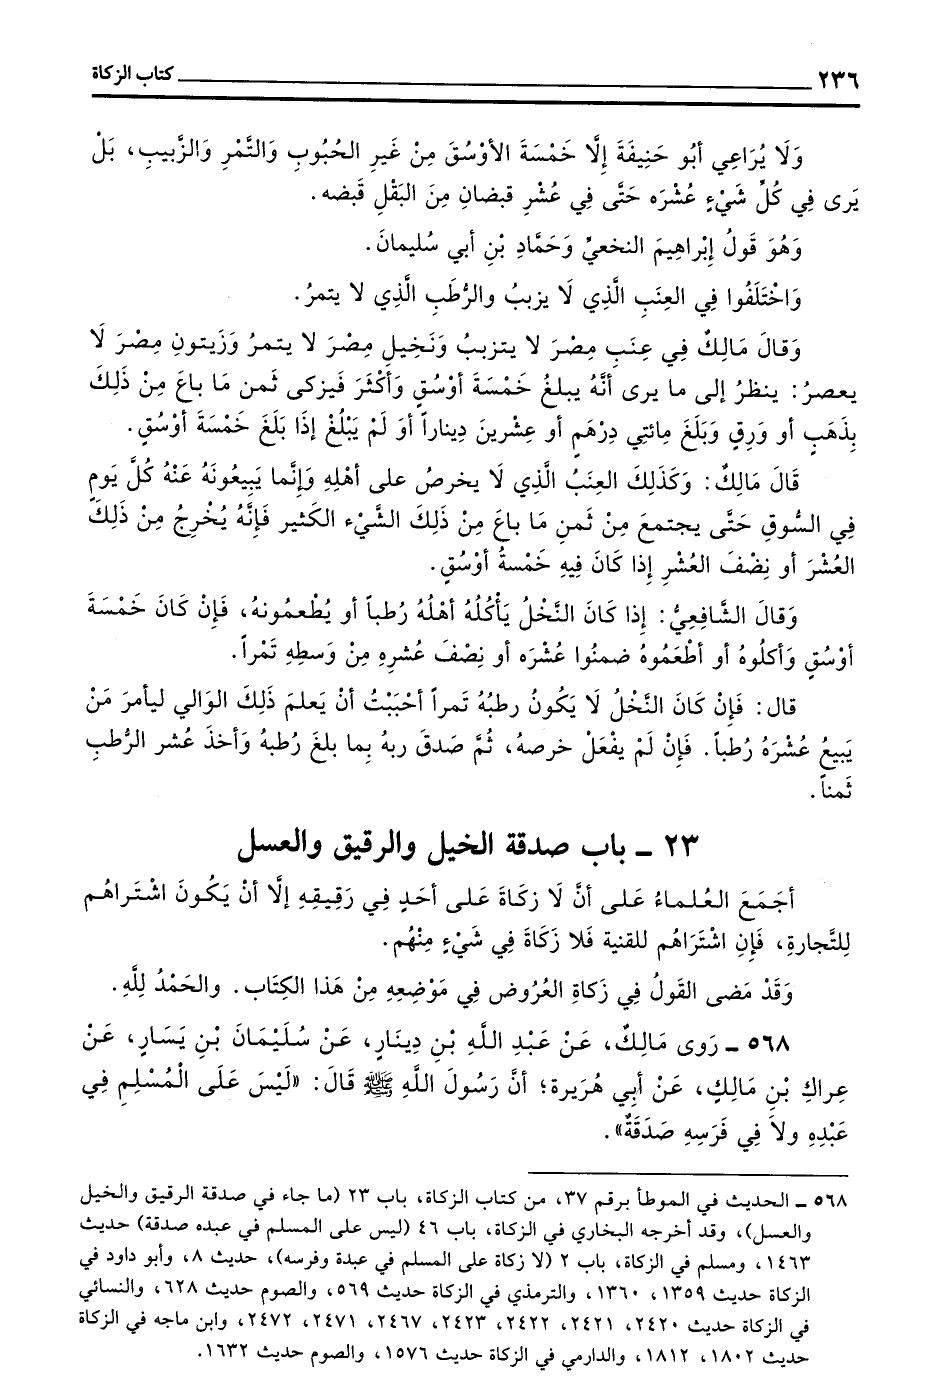 ٢٣٦ كتاب الزكاة
وَلَا يُرَاعِي أبُو حَنِيفَةَ إِلَّا خَمْسَةَ الأوْسُقَ مِنْ غَيرِ الحُبُوبِ وَالتَّمْرِ وَالزَّبيبِ، بَلْ
يَرى فِي كُلِّ شَيْءٍ عُشْرَه حَتَّى فِي عُشْرِ قبضانِ مِنَ البَقْلِ قَبضه.
وَهُوَ قَولُ إِبْراهِيمَ النخعيِّ وَحَمَّادِ بْنِ أبي سُليمانَ.
وَاخْتَلَفُوا فِي العِنَبِ الَّذِي لَا يزببُ والرُّطَبِ الَّذِي لا يتمرُ.
وَقَالَ مَالِكٌ فِي عِنَبِ مِصْرَ لا يتزببُ وَنَخِيلِ مِصْرَ لا يتمرُ وَزَيتونِ مِصْرَ لَا
يعصرُ: ينظرُ إلى ما يرى أنَّهُ يبلغُ خَمْسَةَ أوْسُقٍ وَأكْثَرَ فَيزكى ثَمن مَا باعَ مِنْ ذَلِكَ
بِذَهَبٍ أو وَرِقٍ وَبَلَغَ مِائتي دِرْهَمٍ أو عِشْرينَ دِيناراً أوَ لَمْ يَبْلُغْ إذَا بَلَغَ خَمْسَةَ أوْسُقٍ.
قَالَ مَالِكٌ: وَكَذَلِكَ العِنَبُ الَّذِي لَا يخرصُ على أهْلِهِ وَإنَّما يَبِيعُونَهُ عَنْهُ كُلَّ يَومٍ
فِي السُّوقِ حَتَّى يجتمعَ مِنْ ثَمنِ مَا باعَ مِنْ ذَلِكَ الشَّيْء الكَثير فَإنَّهُ يُخْرِجُ مِنْ ذَلِكَ
العُشْرَ أو نِصْفَ العُشْرِ إذا كَانَ فِيهِ خَمْسةُ أوْسُقٍ.
وَقالَ الشَّافِعِيُّ: إذا كَانَ النَّخْلُ يَأْكُلُهُ أهْلُهُ رُطباً أو يُطْعمُونهُ، فَإنْ كَانَ خَمْسَةَ
أوْسُقٍ وَأكلُوهُ أو أطْعَمُوهُ ضمنُوا عُشْرَه أو نِصْفَ عُشرِهِ مِنْ وَسطِهِ تَمْراً.
قال: فَإنْ كَانَ النَّخْلُ لَا يَكُونُ رطبُهُ تَمراً أحْبَبْتُ أنْ يَعلمَ ذَلِكَ الوَالي ليأمرَ مَنْ
يَبيعُ عُشْرَهُ رُطباً. فَإنْ لَمْ يفْعَلْ خرصهُ، ثُمَّ صَدقَ ربهُ بِما بلغَ رُطبهُ وَأخذَ عُشر الرُّطبِ
ثَمناً.
٢٣ ـ باب صدقة الخيل والرقيق والعسل
أجمَعَ العُلماءُ عَلى أنَّ لَا زكاةَ عَلى أحَدٍ فِي رَقِيقِهِ إلَّا أنْ يَكُونَ اشْتَراهُم
لِلتَّجارةِ، فَإنِ اشْتَرَاهُم للقنية فَلا زَكَاةَ فِي شَيْءٍ مِنْهُم.
وَقَدْ مَضى القَولُ فِي زَكاةِ العُرُوض فِي مَوْضِعِهِ مِنْ هَذا الكِتَاب. والحَمْدُ لِلَّهِ.
٥٦٨ ـ رَوى مَالِكٌ، عَنْ عَبْدِ اللَّهِ بْنِ دِينَارٍ، عَنْ سُلَيْمَانَ بْنِ يَسَارٍ، عَنْ
عِراكِ بْنِ مَالِكٍ، عَنْ أبِي هُرَيرة؛ أنَّ رَسُولَ اللَّهِ ﷺ قَالَ: «لَيْسَ عَلَى الْمُسْلِمِ فِي
عَبْدِهِ ولاَ فِي فَرَسِهِ صَدَقَةٌ».
٥٦٨ ـ الحديث في الموطأ برقم ٣٧، من كتاب الزكاة، باب ٢٣ (ما جاء في صدقة الرقيق والخيل
والعسل)، وقد أخرجه البخاري في الزكاة، باب ٤٦ (ليس على المسلم في عبده صدقة) حديث
١٤٦٣، ومسلم في الزكاة، باب ٢ (لا زكاة على المسلم في عبدة وفرسه)، حديث ٨، وأبو داود في
الزكاة حديث ١٣٥٩، ١٣٦٠، والترمذي في الزكاة حديث ٥٦٩، والصوم حديث ٦٢٨، والنسائي
في الزكاة حديث ٢٤٢٠، ٢٤٢١، ٢٤٢٢، ٢٤٢٣، ٢٤٦٧، ٢٤٧١، ٢٤٧٢، وابن ماجه في الزكاة
حديث ١٨٠٢، ١٨١٢، والدارمي في الزكاة حديث ١٥٧٦، والصوم حديث ١٦٣٢.